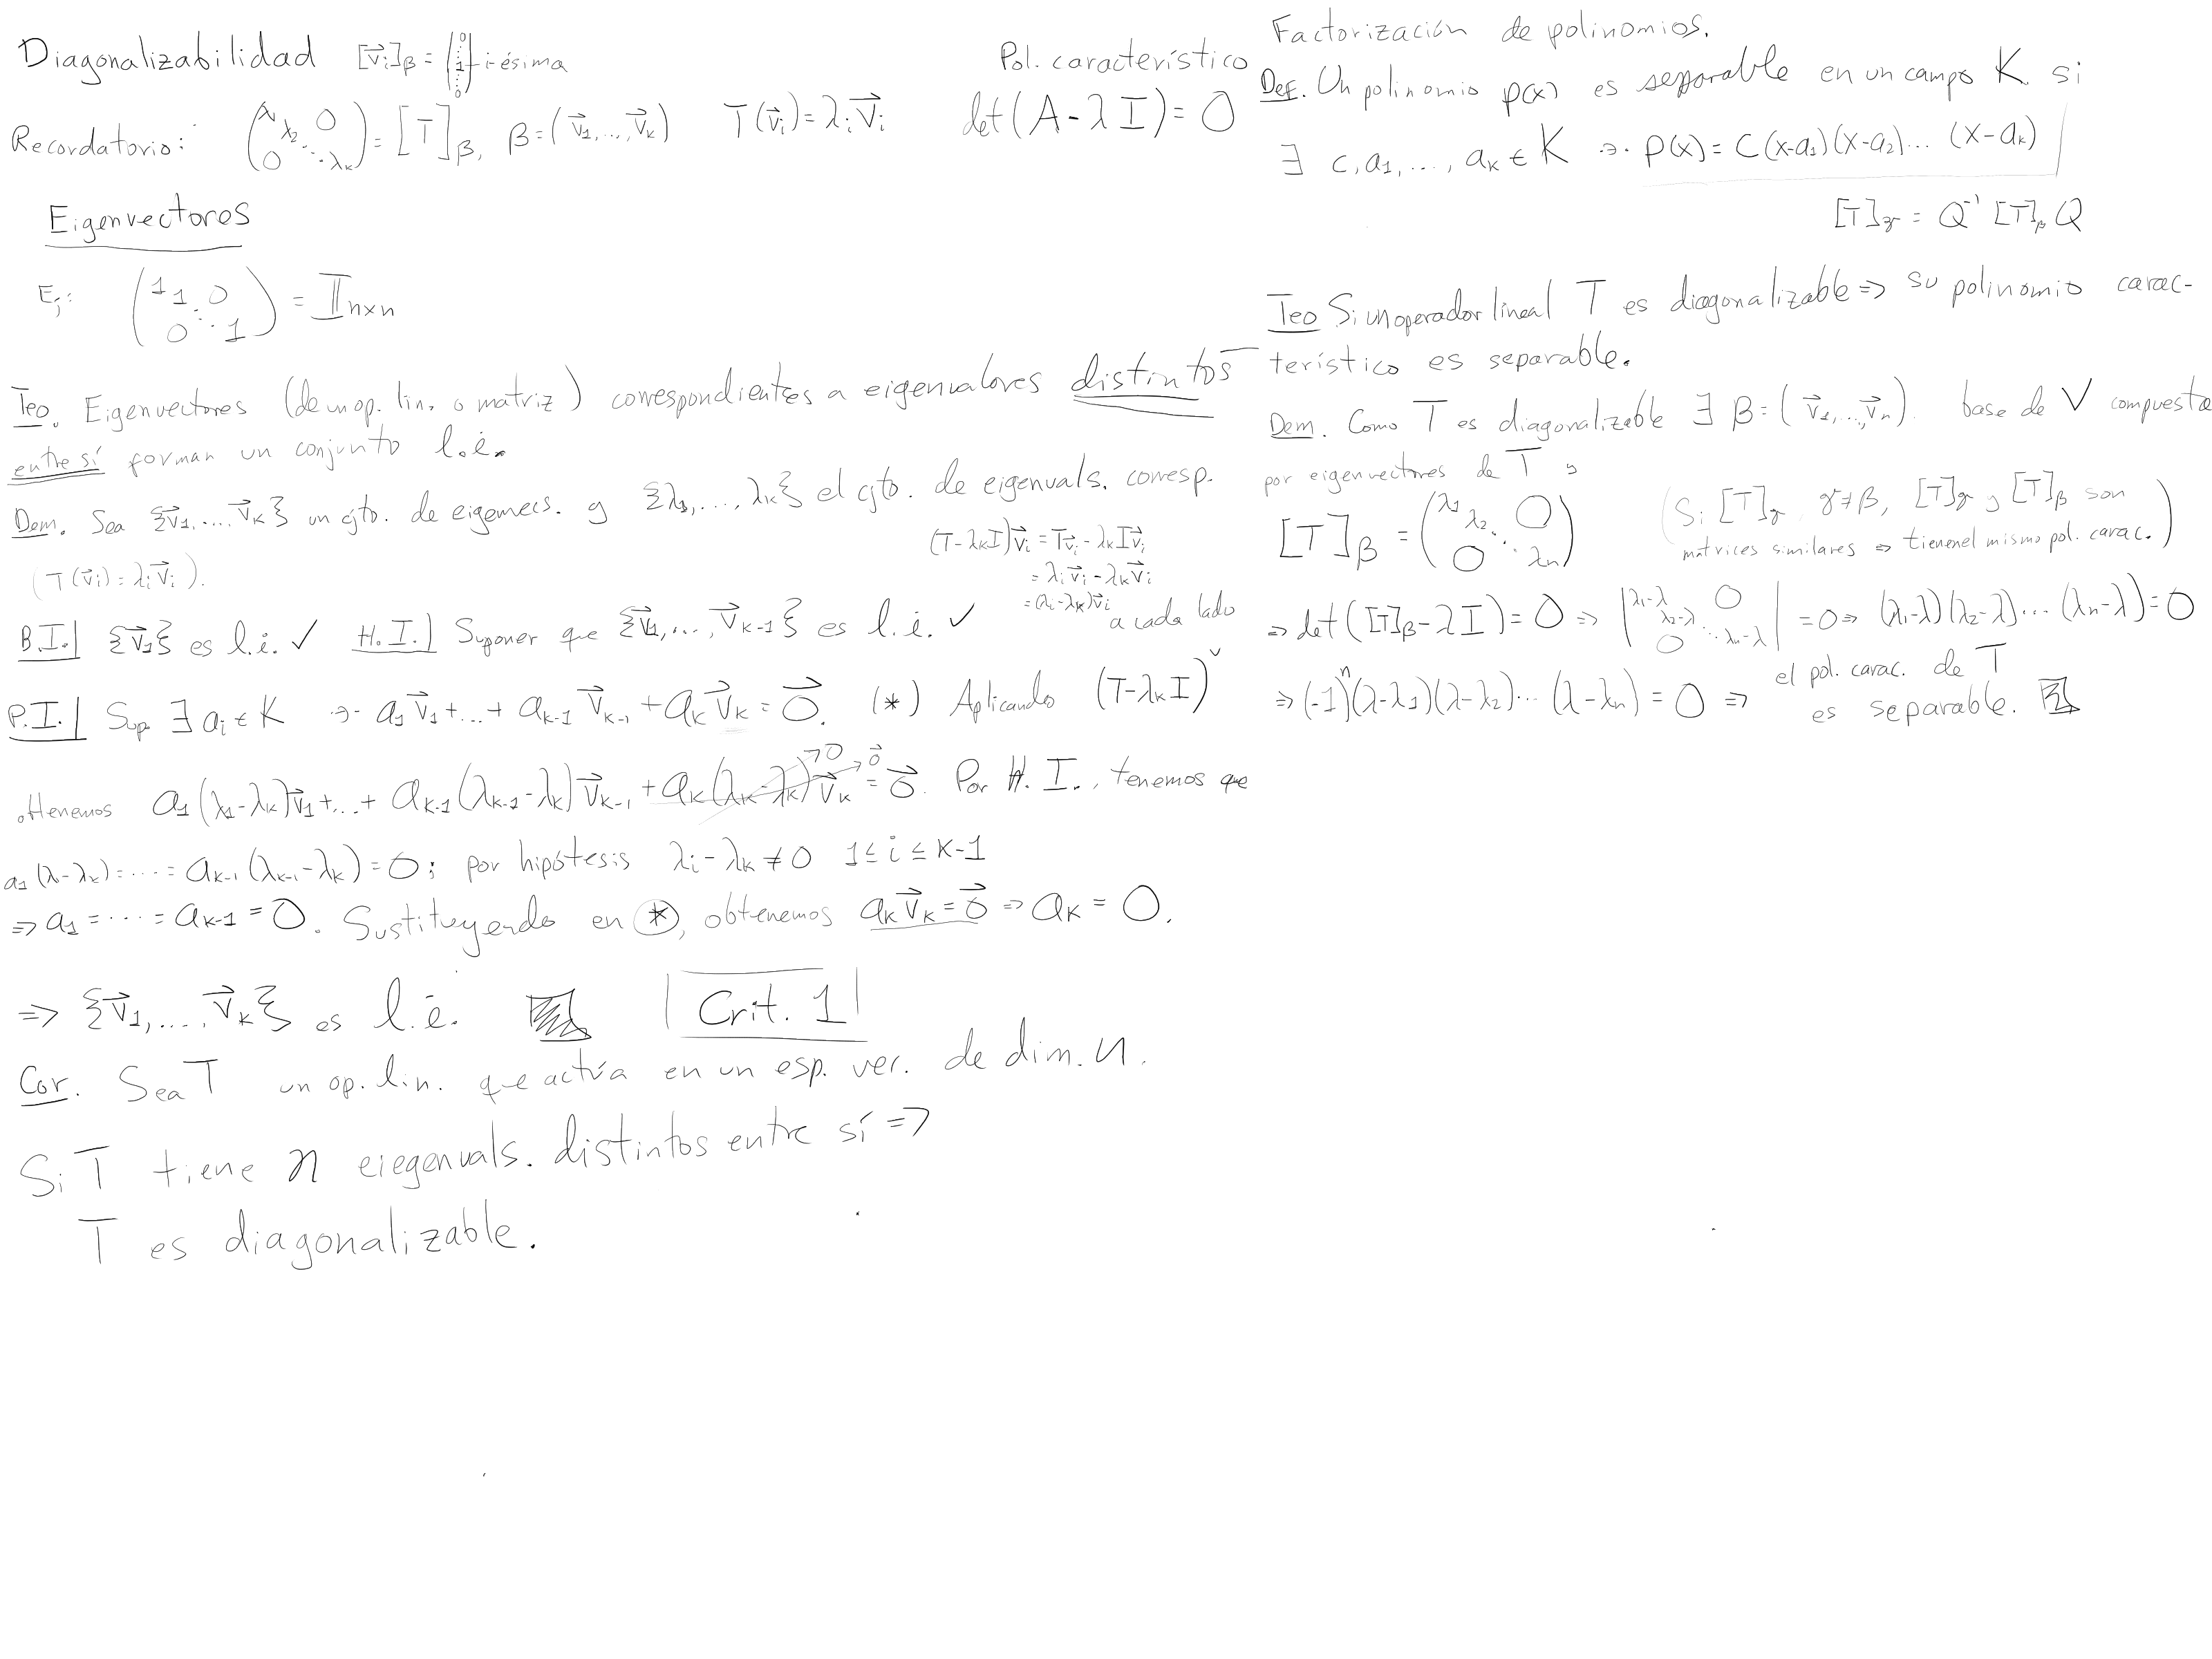 Diagonalizabilidad [v⃗i]β = (0 ⋮ 1 ⋮ 0) i-ésima
Recordatorio: (λ1 λ2 0 0 ⋱ λk) = [T]β, β=(v⃗1,...,v⃗k) T(v⃗i)=λi v⃗i
Pol. característico
det(A-λI)=0
Eigenvectores
Ej: (1 1 0 0 ⋱ 1) = 𝕀n×n
Teo. Eigenvectores (de un op. lin. o matriz) correspondientes a eigenvalores distintos
entre sí forman un conjunto l.i.
Dem. Sea {v⃗1,...,v⃗k} un cjto. de eigenvecs. y {λ1,...,λk} el cjto. de eigenvals. corresp.
(T(v⃗i)=λi v⃗i).
(T-λkI)v⃗i = Tv⃗i - λkIv⃗i
= λi v⃗i - λk v⃗i
= (λi-λk)v⃗i
B.I.| {v⃗1} es l.i. ✓ H.I.| Suponer que {v⃗1,...,v⃗k-1} es l.i. ✓ a cada lado
P.I.| Sup. ∃ ai ∈ K ∋· a1v⃗1+...+ak-1v⃗k-1+akv⃗k=0⃗. (*) Aplicando (T-λkI)
obtenemos a1(λ1-λk)v⃗1+...+ak-1(λk-1-λk)v⃗k-1+ak(λk-λk)v⃗k=0⃗. Por H.I., tenemos que
a1(λ-λk)=···=ak-1(λk-1-λk)=0; por hipótesis λi-λk≠0 1≤i≤k-1
⇒ a1=···=ak-1=0. Sustituyendo en (*), obtenemos akv⃗k=0⃗ ⇒ ak=0.
⇒ {v⃗1,...,v⃗k} es l.i.
Crit. 1
Cor. Sea T un op. lin. que actúa en un esp. vec. de dim. n.
Si T tiene n eiegenvals. distintos entre sí ⇒
T es diagonalizable.
Factorización de polinomios.
Def. Un polinomio p(x) es separable en un campo K si
∃ c,a1,...,ak ∈ K ∋· p(x)=c(x-a1)(x-a2)...(x-ak)
[T]γ = Q⁻¹[T]βQ
Teo Si un operador lineal T es diagonalizable ⇒ su polinomio carac-
terístico es separable.
Dem. Como T es diagonalizable ∃ β=(v⃗1,...,v⃗n). base de V compuesta
por eigenvectores de T y
[T]β = (λ1 λ2 0 0 ⋱ λn)
(Si [T]γ, γ≠β, [T]γ y [T]β son
matrices similares ⇒ tienen el mismo pol. carac.)
⇒ det([T]β-λI)=0 ⇒ |λ1-λ λ2-λ 0 0 ⋱ λn-λ| =0 ⇒ (λ1-λ)(λ2-λ)...(λn-λ)=0
⇒ (-1)ⁿ(λ-λ1)(λ-λ2)···(λ-λn)=0 ⇒ el pol. carac. de T
es separable.